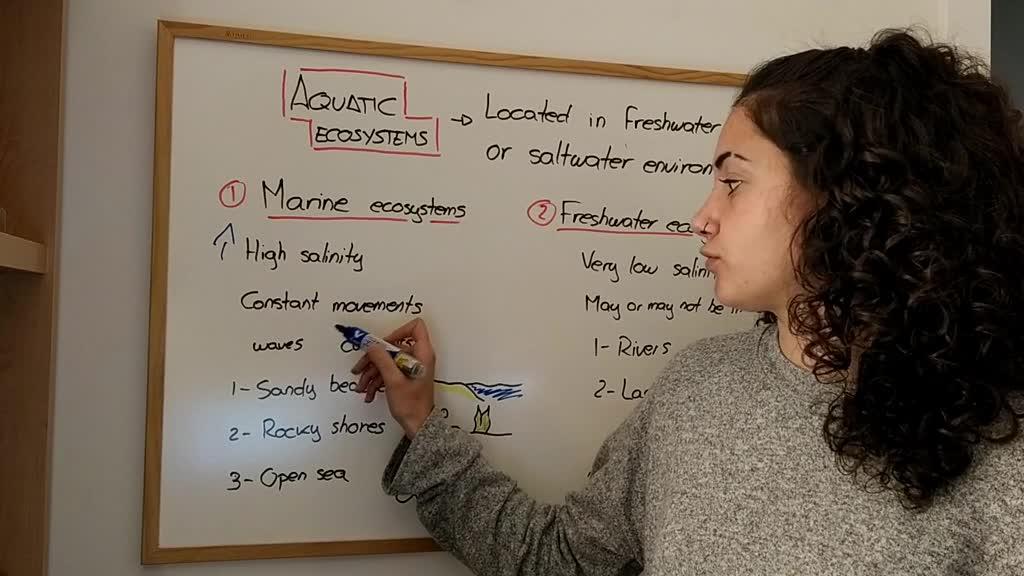 AQUATIC
ECOSYSTEMS
→ Located in freshwater
or saltwater environ
① Marine ecosystems
↑ High salinity
Constant movements
waves
1- Sandy
2- Rocky shores
3- Open sea
② Freshwater
Very low
May or may not be
1- Rivers
2-